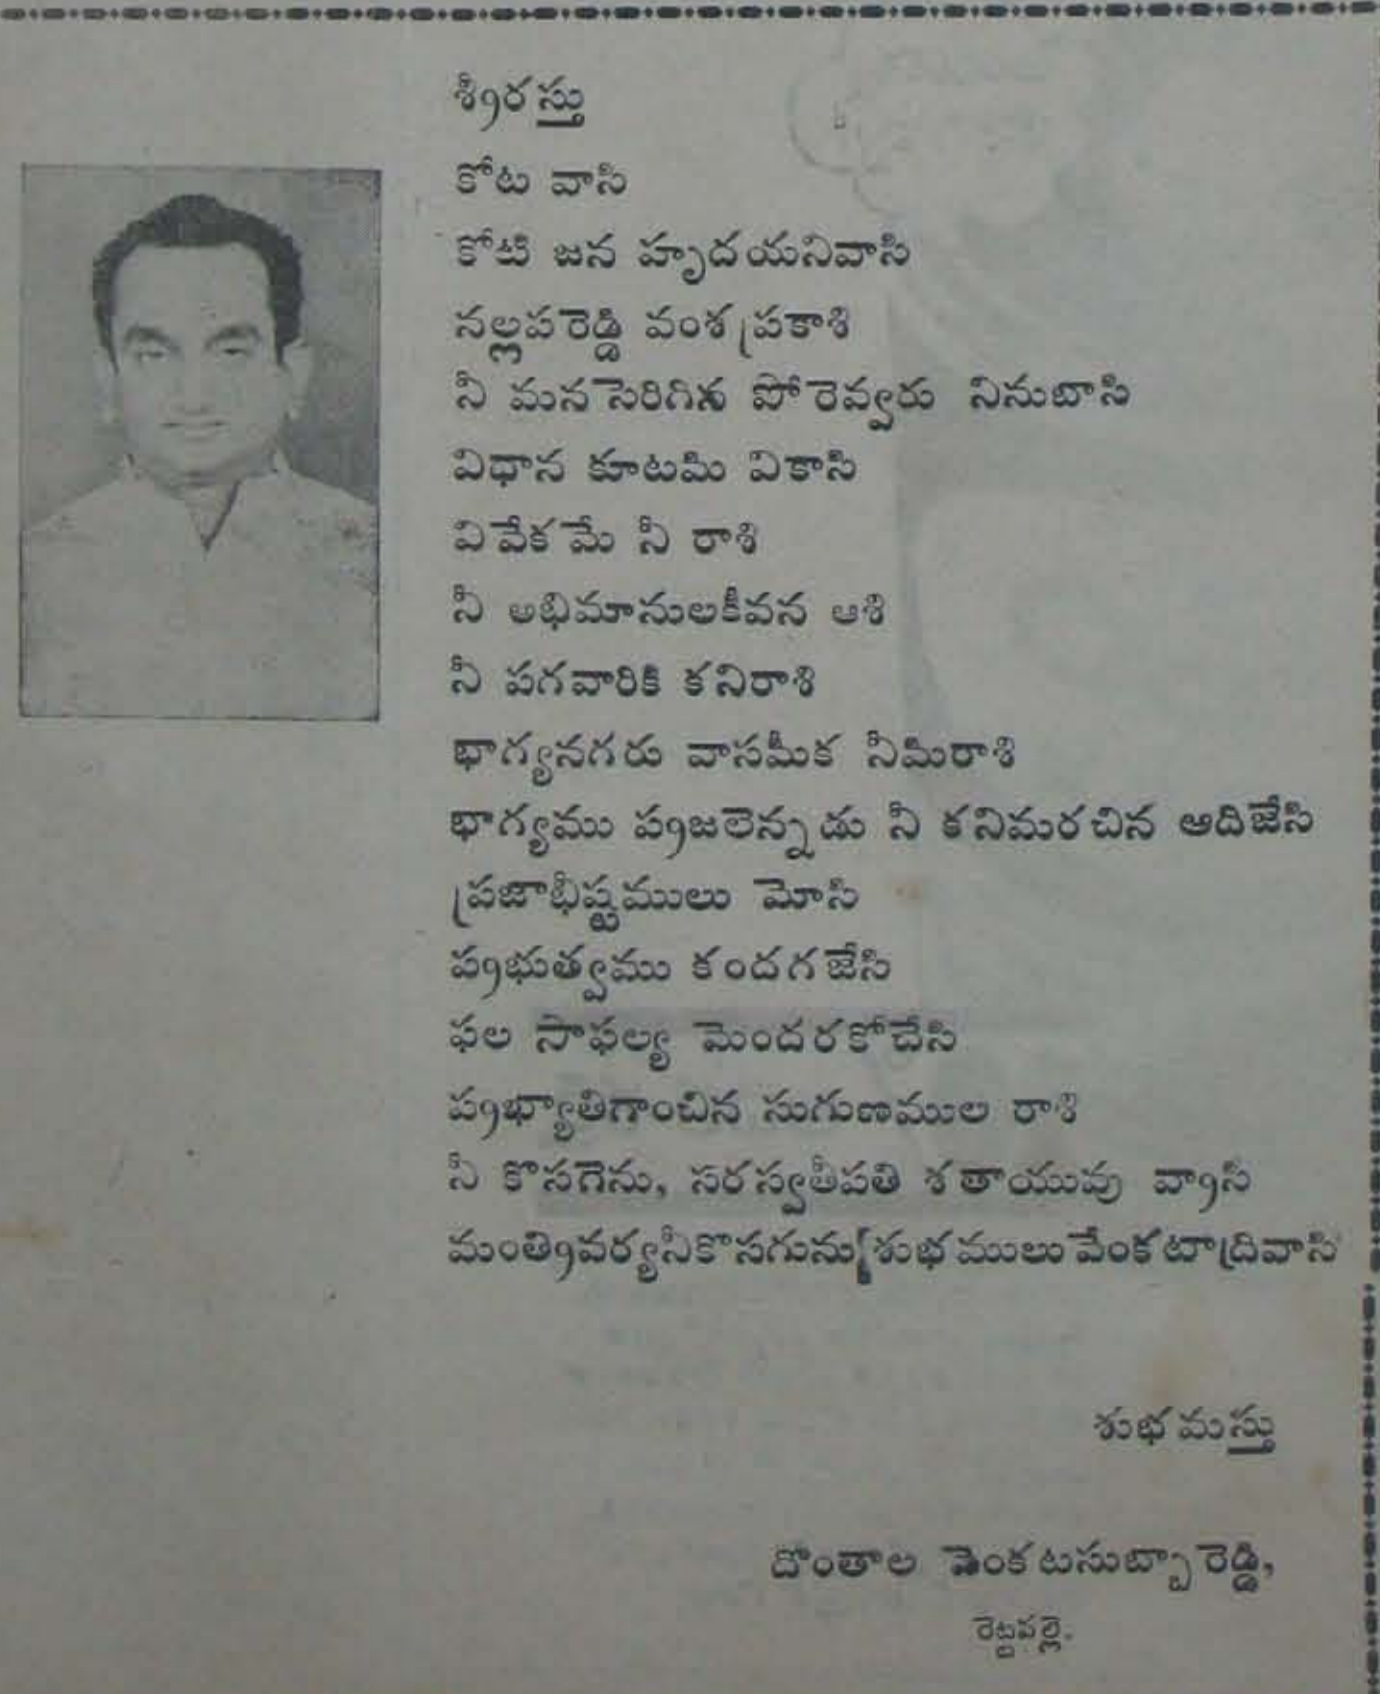 శ్రీరస్తు
కోట వాసి
కోటి జన హృదయనివాసి
నల్లపరెడ్డి వంశ ప్రకాశి
నీ మన సెరిగిన పోరెవ్వరు నినుబాసి
విధాన కూటమి వికాసి
వివేకమే నీ రాశి
నీ అభిమానులకీవన ఆశి
నీ పగవారికి కనిరాశి
భాగ్యనగరు వాసమీక నీమిరాశి
భాగ్యము ప్రజలెన్నడు నీ కనిమరచిన ఆదిజేసి
ప్రజాభీష్టములు మోసి
ప్రభుత్వము కందగజేసి
ఫల సాఫల్య మెందరకోచేసి
ప్రఖ్యాతిగాంచిన సుగుణముల రాశి
నీ కొసగెను, సరస్వతీపతి శతాయువు వ్రాసి
మంత్రివర్యనీకొసగును శుభములు వేంకటాద్రివాసి
శుభమస్తు
దొంతాల వెంకటసుబ్బారెడ్డి,
రెట్టపల్లె.